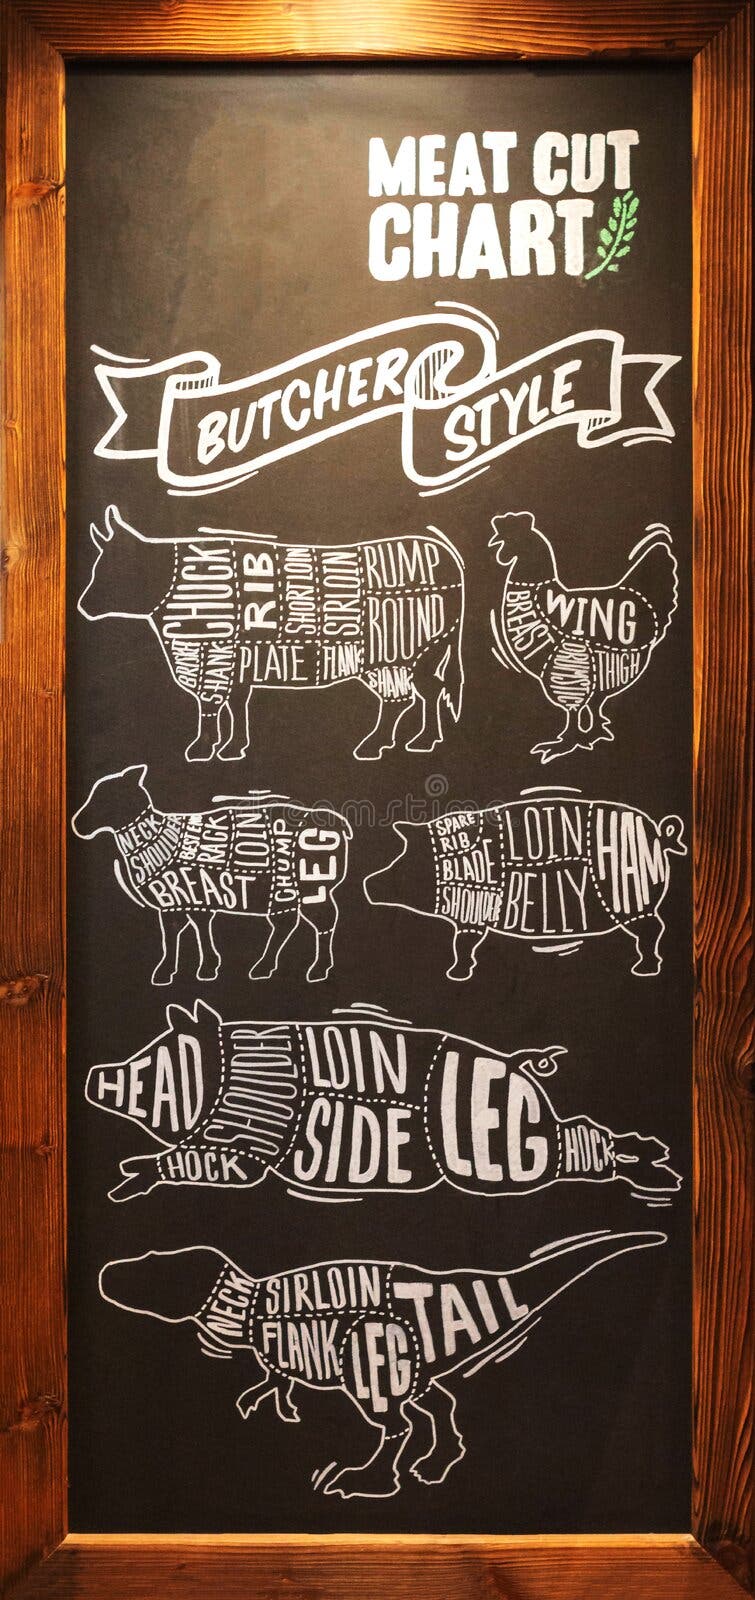 MEAT CUT
CHART
BUTCHER
STYLE
CHUCK
RIB
SHORTLOIN
SIRLOIN
RUMP
ROUND
BRISKET
SHANK
PLATE
FLANK
SHANK
BREAST
WING
DRUMSTICK
THIGH
NECK
SHOULDER
BEST END
RACK
LOIN
CHUMP
LEG
BREAST
SPARE
RIB
BLADE
SHOULDER
LOIN
BELLY
HAM
HEAD
SHOULDER
LOIN
SIDE
LEG
HOCK
HOCK
NECK
SIRLOIN
FLANK
LEG
TAIL
dreamstime